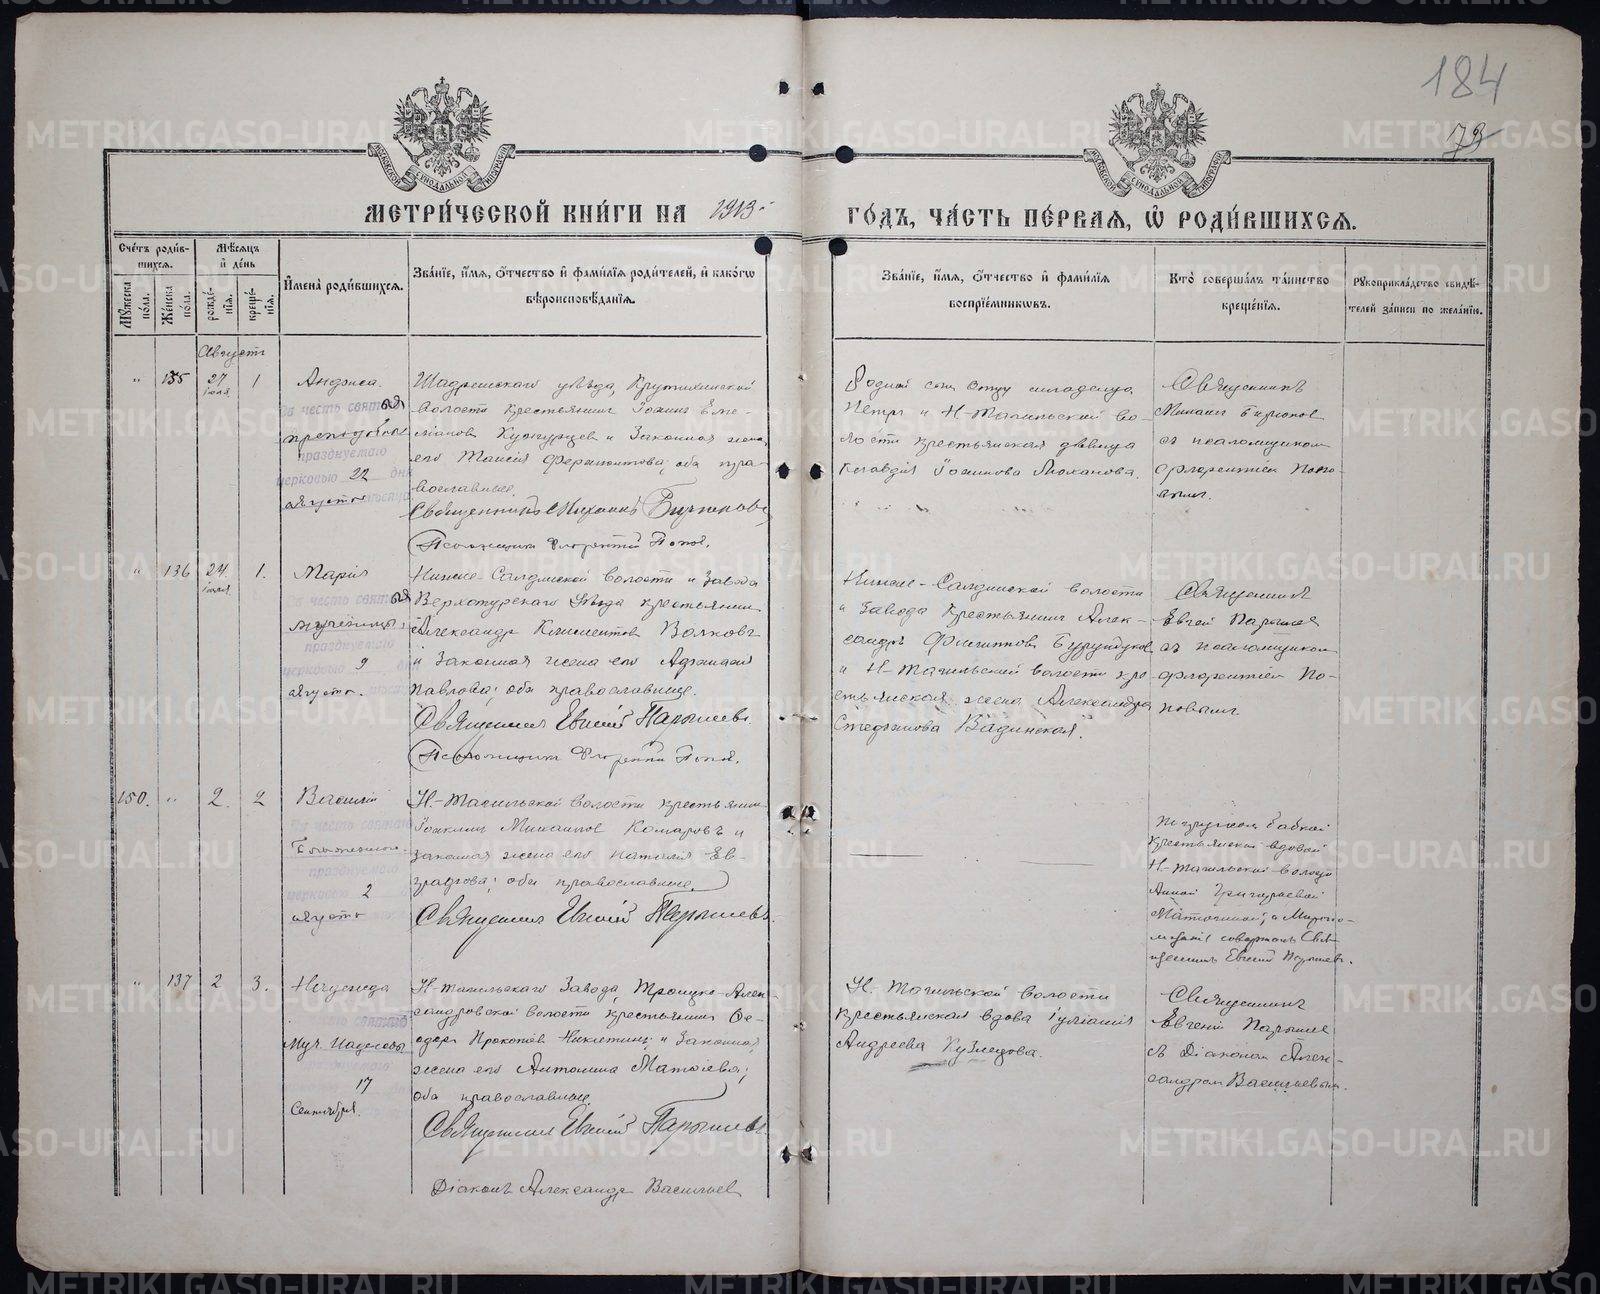 184
79
МЕТРИ́ЧЕСКОЙ КНИ́ГИ НА 1913
ГО́ДЪ, ЧА́СТЬ ПЕ́РВАЯ, Ѡ РОДИ́ВШИХСЯ.
Сче́тъ роди́в-
шихся.
Му́жеска по́ла.
Же́нска по́ла.
Мѣ́сяцъ
и де́нь
рожде́-
нія.
креще́-
нія.
Имена̀ роди́вшихся.
Зва́ніе, и́мя, о́тчество и фами́лія роди́телей, и како́гѡ
вѣроисповѣ́данія.
Зва́ніе, и́мя, о́тчество и фами́лія
воспріе́мниковъ.
Кто̀ соверша́лъ та́инство
креще́нія.
Рукоприкла́дство свидѣ́-
телей за́писи по жела́нію.
Августъ
" 135 27 іюля 1
Анфиса
Въ честь святыя
преподобныя
празднуемаго
церковью 22 дня
августа
Шадринскаго уѣзда, Крутихинской
волости крестьянинъ Іоаннъ Еме-
ліановъ и законная жена
его Таисія; оба пра-
вославные.
Священникъ Михаилъ
Псаломщикъ Флорентій Поповъ.
Родной сынъ отцу младенца
Петръ и Н-Тагильской во-
лости крестьянская дѣвица
Клавдія Іоаннова
Священникъ
Михаилъ
съ псаломщикомъ
Флорентіемъ Попо-
вымъ.
" 136 24 іюля 1.
Марія
Въ честь святыя
мученицы,
празднуемаго
церковью 9 дня
августа.
Нижне-Салдинской волости и завода
Верхотурскаго уѣзда крестьянинъ
Александръ Климентовъ Волковъ
и законная жена его
Павлова; оба православные.
Священникъ Евгеній Парышевъ.
Псаломщикъ Флорентій Поповъ.
Нижне-Салдинской волости
и завода крестьянинъ Алек-
сандръ Филипповъ
и Н-Тагильской волости кре-
стьянская жена Александра
Стефанова
Священникъ
Евгеній Парышевъ
съ псаломщикомъ
Флорентіемъ По-
повымъ
150. " 2. 2
Василій
Въ честь святаго
Блаженнаго
празднуемаго
церковью 2
августа
Н-Тагильской волости крестьянинъ
Іоакимъ Михаиловъ Комаровъ и
законная жена его Наталія Ев-
графова; оба православные.
Священникъ Евгеній Парышевъ.
Погружена бабкой
крестьянской вдовой
Н-Тагильской волости
Анной Григорьевой
а Миропо-
мазаніе совершалъ Свя-
щенникъ Евгеній Парышевъ.
" 137 2 3.
Надежда
святаго
Муч. Надежды
17
Сентября.
Н-Тагильскаго завода, Троицко-Алек-
сандровской волости крестьянинъ Ѳе-
одоръ Прокопіевъ Никитинъ и законная
жена его Антонина Матѳіева;
оба православные.
Священникъ Евгеній Парышевъ
Діаконъ Александръ Васильевъ
Н. Тагильской волости
крестьянская вдова Іуліанія
Андреева Кузнецова.
Священникъ
Евгеній Парышевъ
съ Діакономъ Алек-
сандромъ Васильевымъ.
METRIKI.GASO-URAL.RU